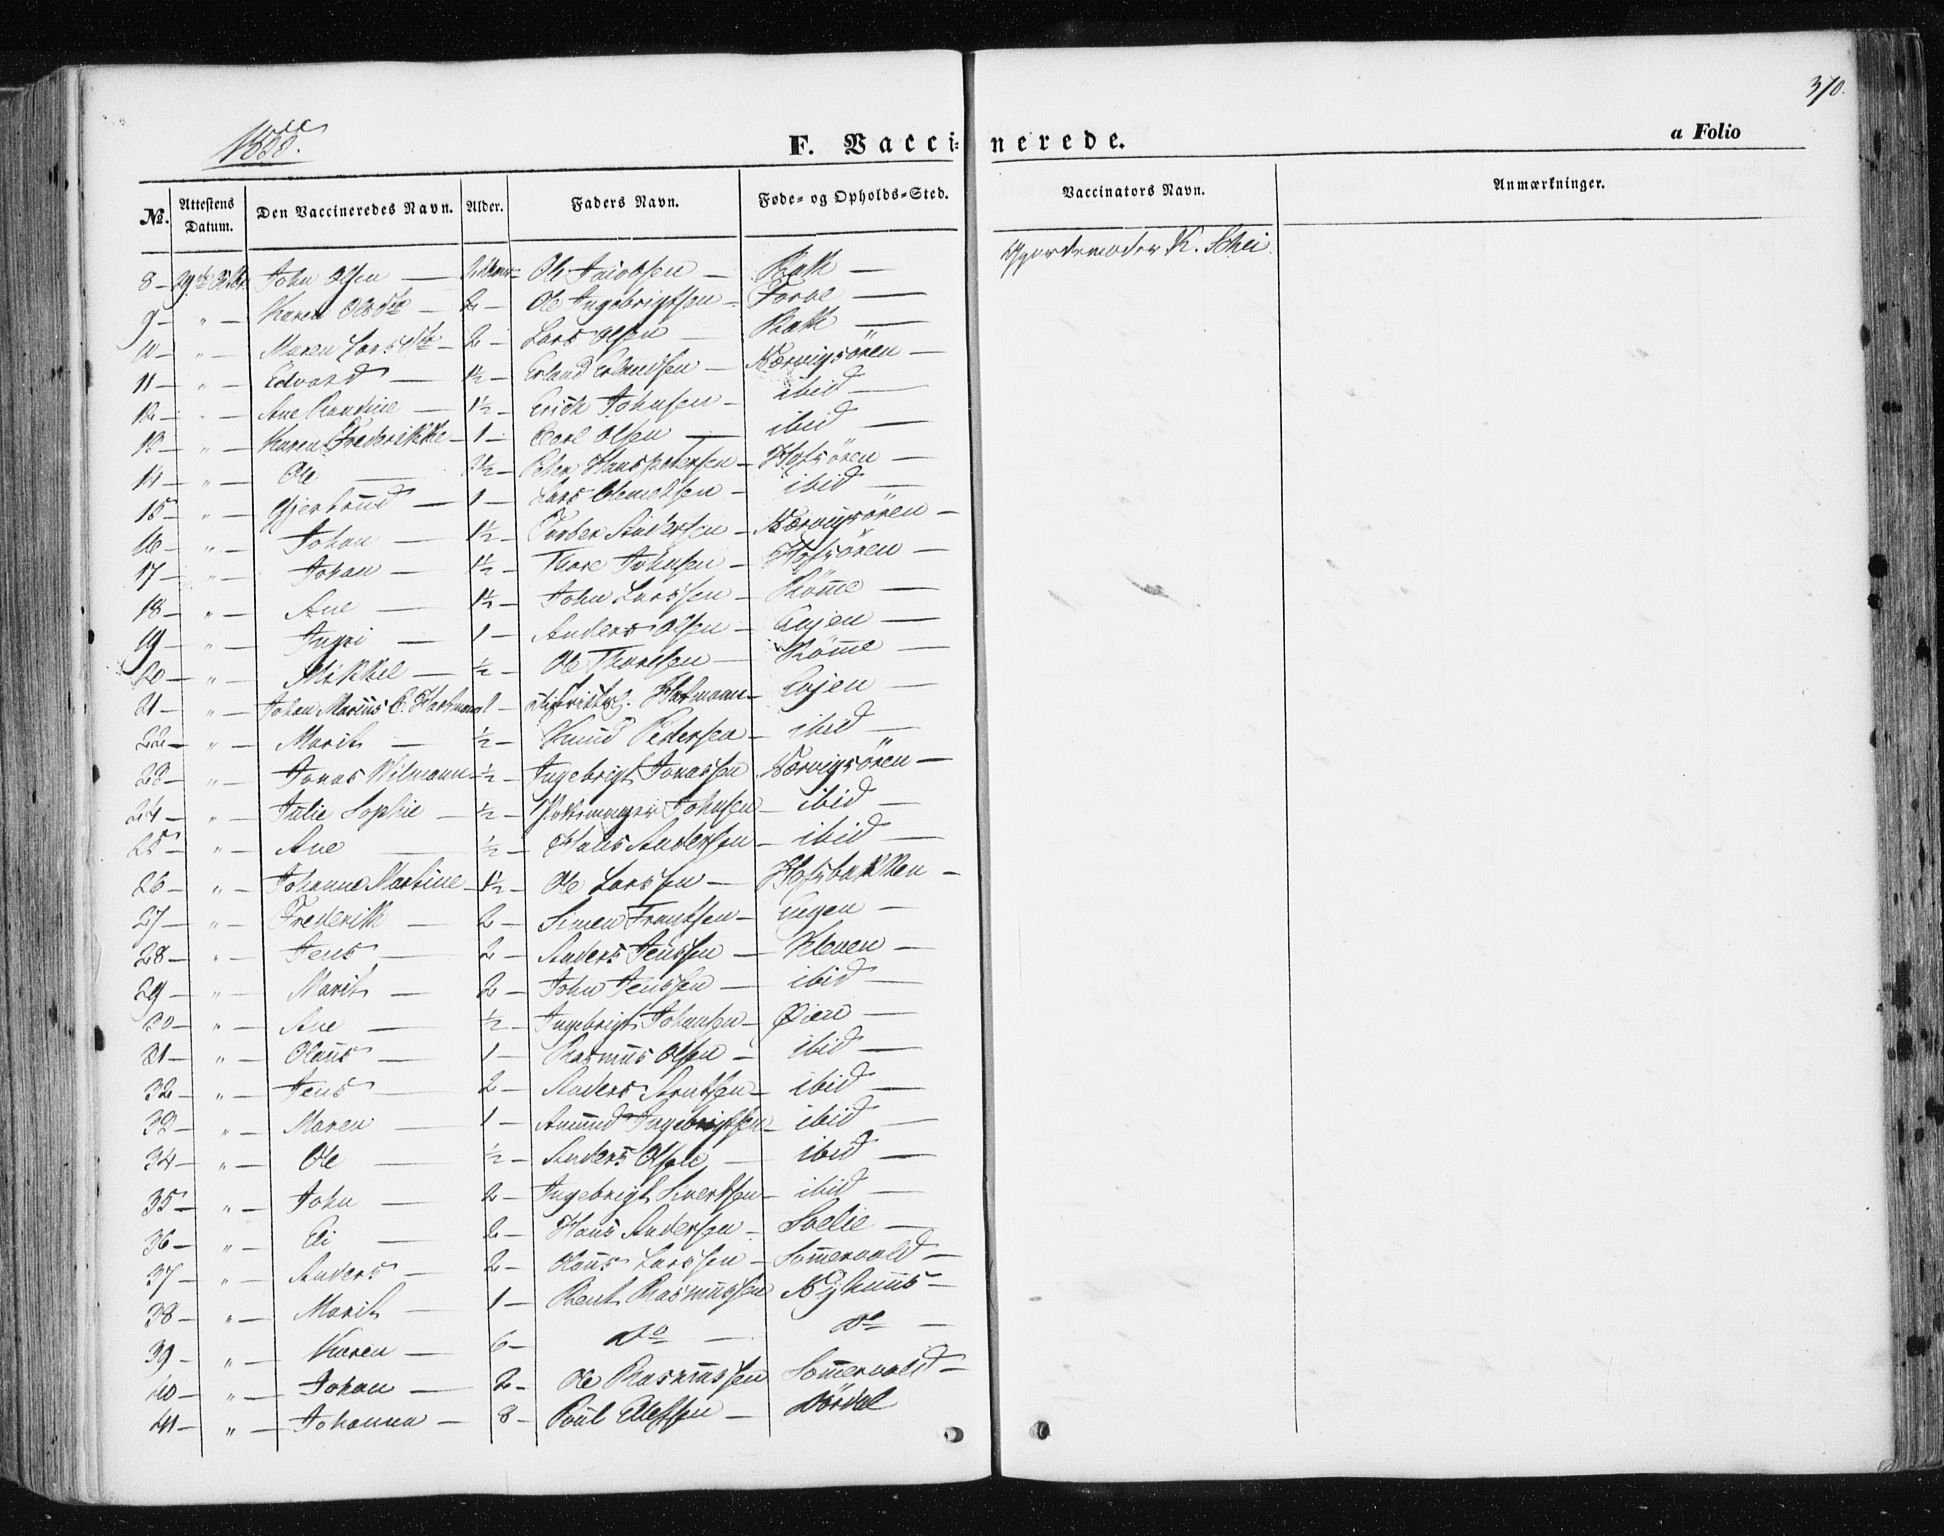 370.
1855.
F. Vaccinerede.
a Folio
№. Attestens Datum. Den Vaccineredes Navn. Alder. Faders Navn. Føde- og Opholds-Sted. Vaccinators Navn. Anmærkninger.
8 – 29de John Olsen — 2 Ole Jacobsen — Rath — Gjordemoder K. Schei
9 – " – Karen Olsdtr – 2 – Ole Ingebrigtsen – Forve —
10 – " – Maren Larsdtr – 2 – Lars Olsen — Rath —
11 – " – Edvard — 1½ – Erland Erlandsen – Kørvigsören –
12 – " – Ane Randine – 1½ – Erich Johnsen – ibid —
13 – " – Karen Frederikke – 1 – Carl Olsen — ibid —
14 – " – Ole — Peter Hans Petersen – Hofsören –
15 – " – Gjertrud – 1 – Lars Clemetsen – ibid —
16 – " – Johan — 1½ – Torber Andersen – Kørvigsören –
17 – " – Johan — 1½ – Thore Johnsen – Hofsören –
18 – " – Ane — 1½ – John Larssen – Römme —
19 – " – Ingri — 1 – Anders Olsen – Evjen —
20 – " – Mikkel — ½ – Ole Thoresen — Römme —
21 – " – Johan Marius C. Hartmann 1 – Hartmann – Evjen —
22 – " – Marit — ½ – Knud Pedersen – ibid —
23 – " – Jonas Wilmann – ½ – Ingebrigt Jonassen Kørvigsören –
24 – " – Julie Sophie – ½ – Johnsen – ibid —
25 – " – Ane — ½ – Hans Andersen – ibid —
26 – " – Johanna Martine – 1½ – Ole Larssen — Hofsbakken –
27 – " – Frederik – 2 – Simen Frantsen – Engen —
28 – " – Jens — 2 – Anders Jenssen – Kleven —
29 – " – Marit — 2 – John Jenssen – ibid —
30 – " – Ane — ½ – Ingebrigt Johansen – Øien —
31 – " – Olaus — 1 – Rasmus Olsen – ibid —
32 – " – Jens — 2 – Anders Arntsen – ibid —
33 – " – Maren — 1 – Amund Ingebrigtsen – ibid —
34 – " – Ole — ½ – Anders Olsen — ibid —
35 – " – John — 2 – Ingebrigt Sivertsen – ibid —
36 – " – Eli — 2 – Hans Andersen – Solie —
37 – " – Anders – 2 – Olaus Larssen – Sommervold –
38 – " – Marit — 1 – Bent Rasmussen
39 – " – Karen — 6 – do — do —
40 – " – Johan — 2 – Ole Rasmussen Sommervold –
41 – " – Johanna – 8 – Poul Ellefsen – Dördal